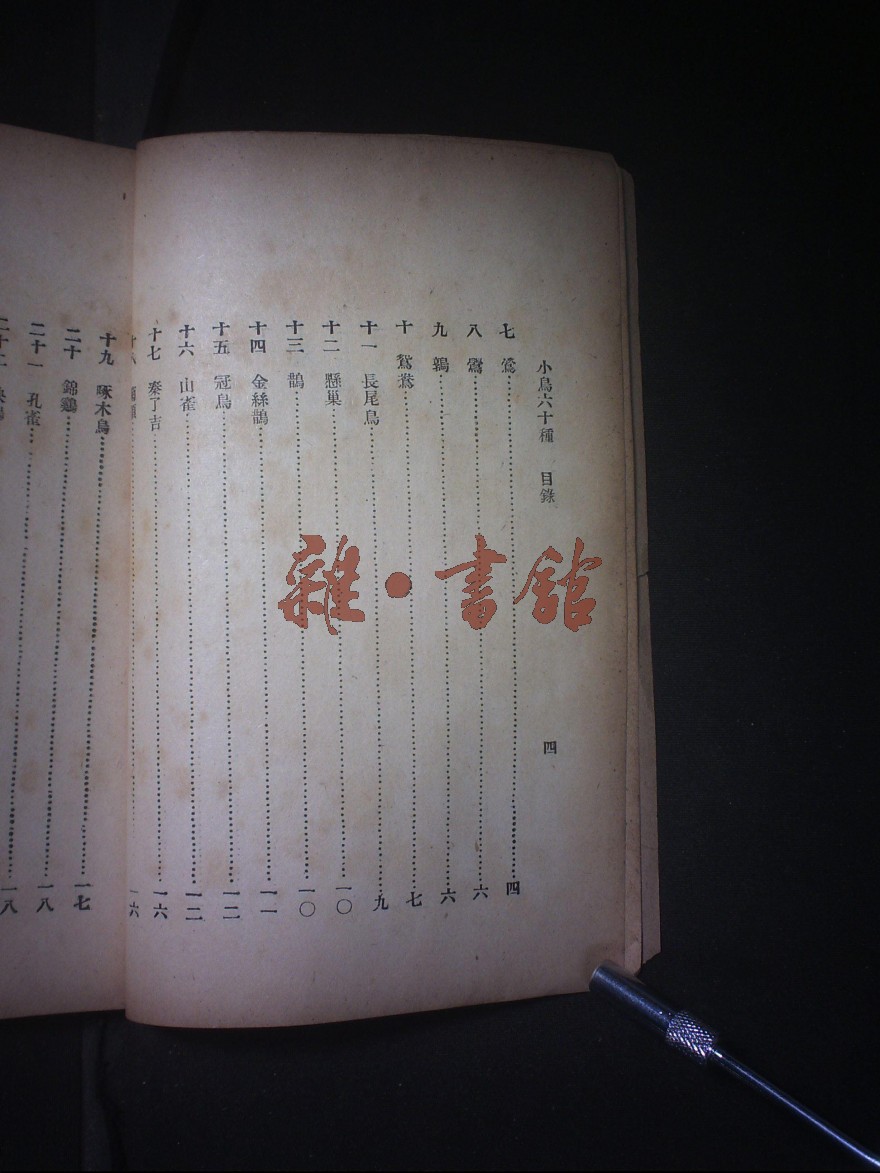 小鳥六十種 目錄 四
七 鶯 四
八 鷺 六
九 鶉 六
十 鴛鴦 七
十一 長尾鳥 九
十二 懸巢 一〇
十三 鵲 一〇
十四 金絲鵲 一一
十五 冠鳥 一二
十六 山雀 一二
十七 秦了吉 一六
十八 一六
十九 啄木鳥 一七
二十 錦鷄 一八
二十一 孔雀 一八
雜·書館